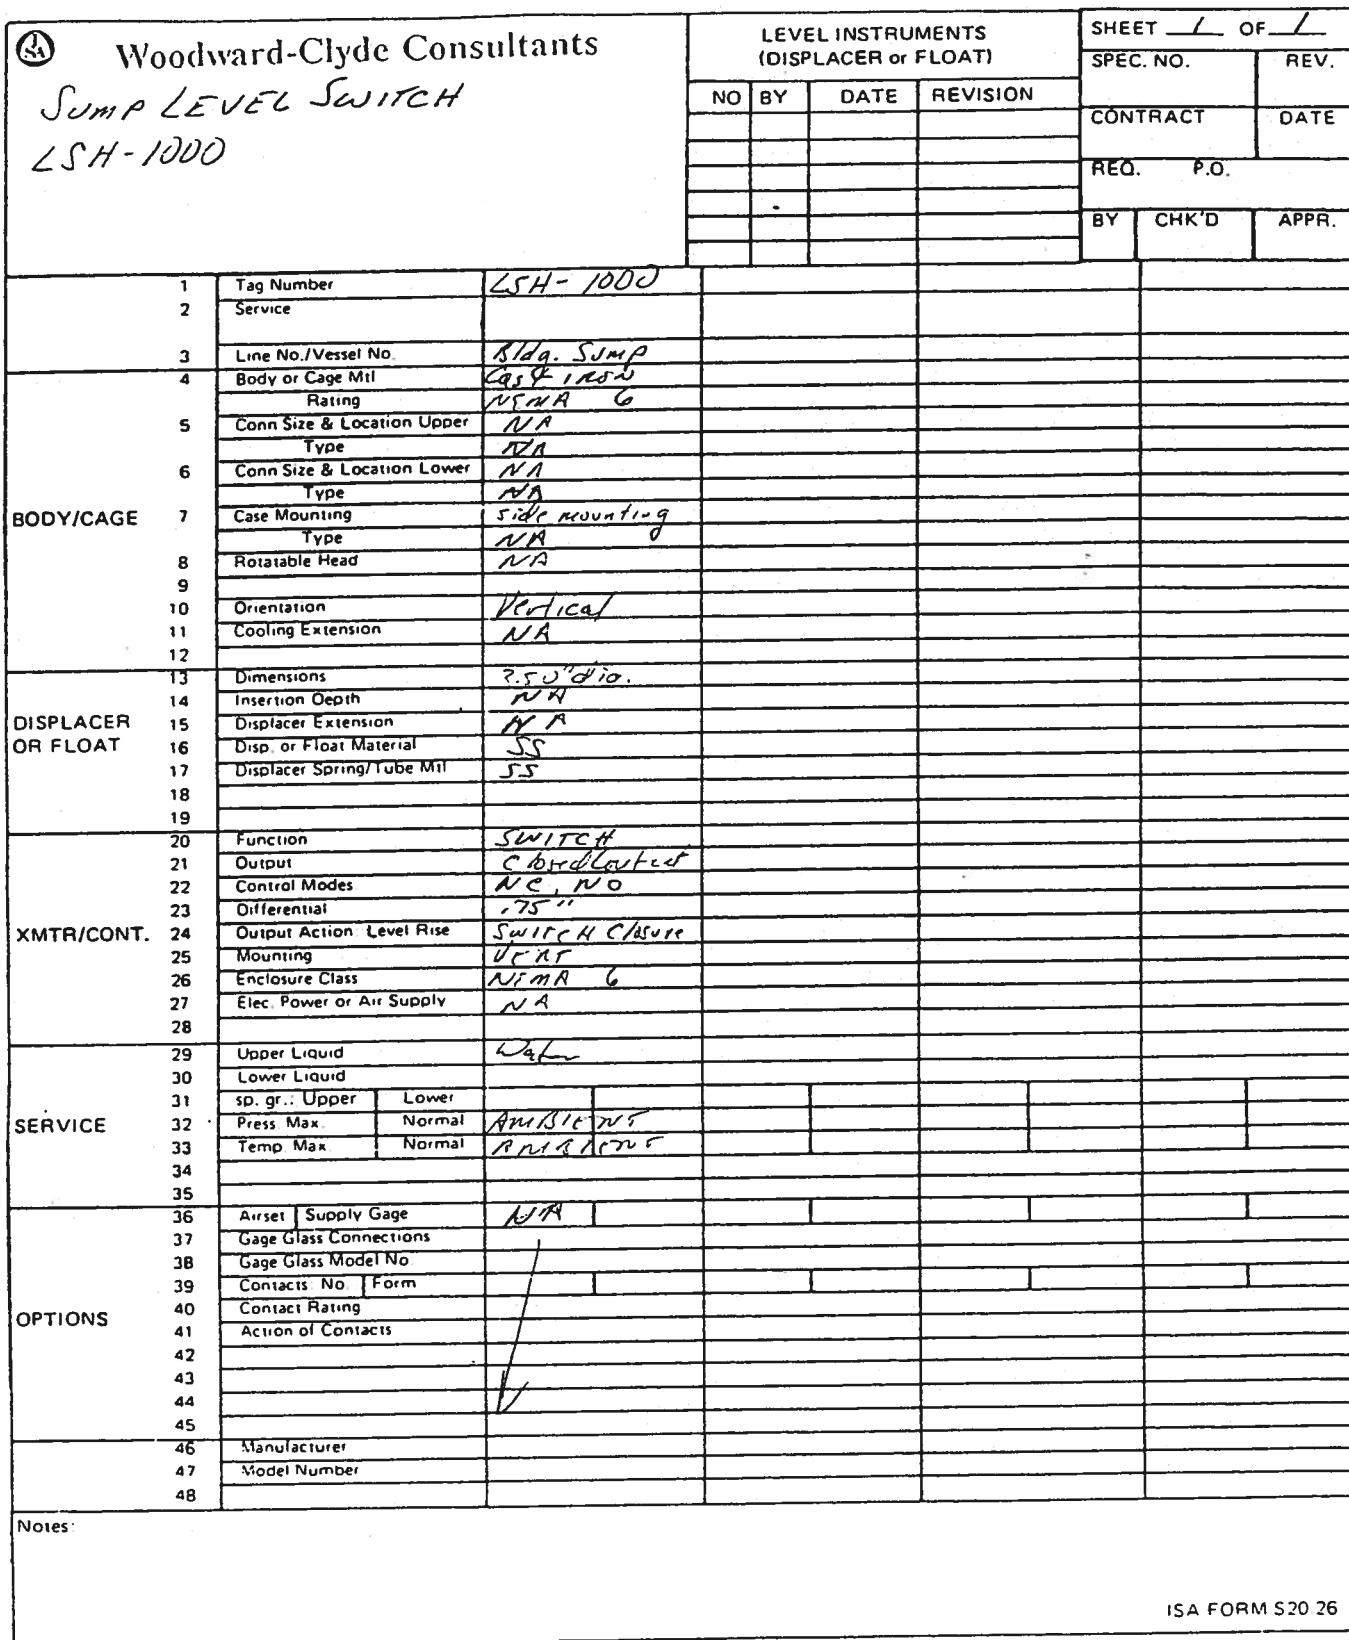 ISA Woodward-Clyde Consultants
SUMP LEVEL SWITCH
LSH-1000
LEVEL INSTRUMENTS
(DISPLACER or FLOAT)
NO BY DATE REVISION
SHEET 1 OF 1
SPEC. NO. REV.
CONTRACT DATE
REQ. P.O.
BY CHK'D APPR.
1 Tag Number LSH-1000
2 Service
3 Line No./Vessel No. Bldg. Sump
BODY/CAGE
4 Body or Cage Mtl Cast IRON
Rating NEMA 6
5 Conn Size & Location Upper NA
Type NA
6 Conn Size & Location Lower NA
Type NA
7 Case Mounting side mounting
Type NA
8 Rotatable Head NA
9
10 Orientation Vertical
11 Cooling Extension NA
12
DISPLACER
OR FLOAT
13 Dimensions dia.
14 Insertion Depth NA
15 Displacer Extension NA
16 Disp. or Float Material SS
17 Displacer Spring/Tube Mtl SS
18
19
XMTR/CONT.
20 Function SWITCH
21 Output Closed Contact
22 Control Modes NC, NO
23 Differential .75"
24 Output Action: Level Rise SWITCH Closure
25 Mounting VERT
26 Enclosure Class NEMA 6
27 Elec. Power or Air Supply NA
28
SERVICE
29 Upper Liquid Water
30 Lower Liquid
31 sp. gr.: Upper Lower
32 Press. Max. Normal AMBIENT
33 Temp. Max. Normal AMBIENT
34
35
OPTIONS
36 Airset Supply Gage NA
37 Gage Glass Connections
38 Gage Glass Model No.
39 Contacts: No. Form
40 Contact Rating
41 Action of Contacts
42
43
44
45
46 Manufacturer
47 Model Number
48
Notes:
ISA FORM S20.26